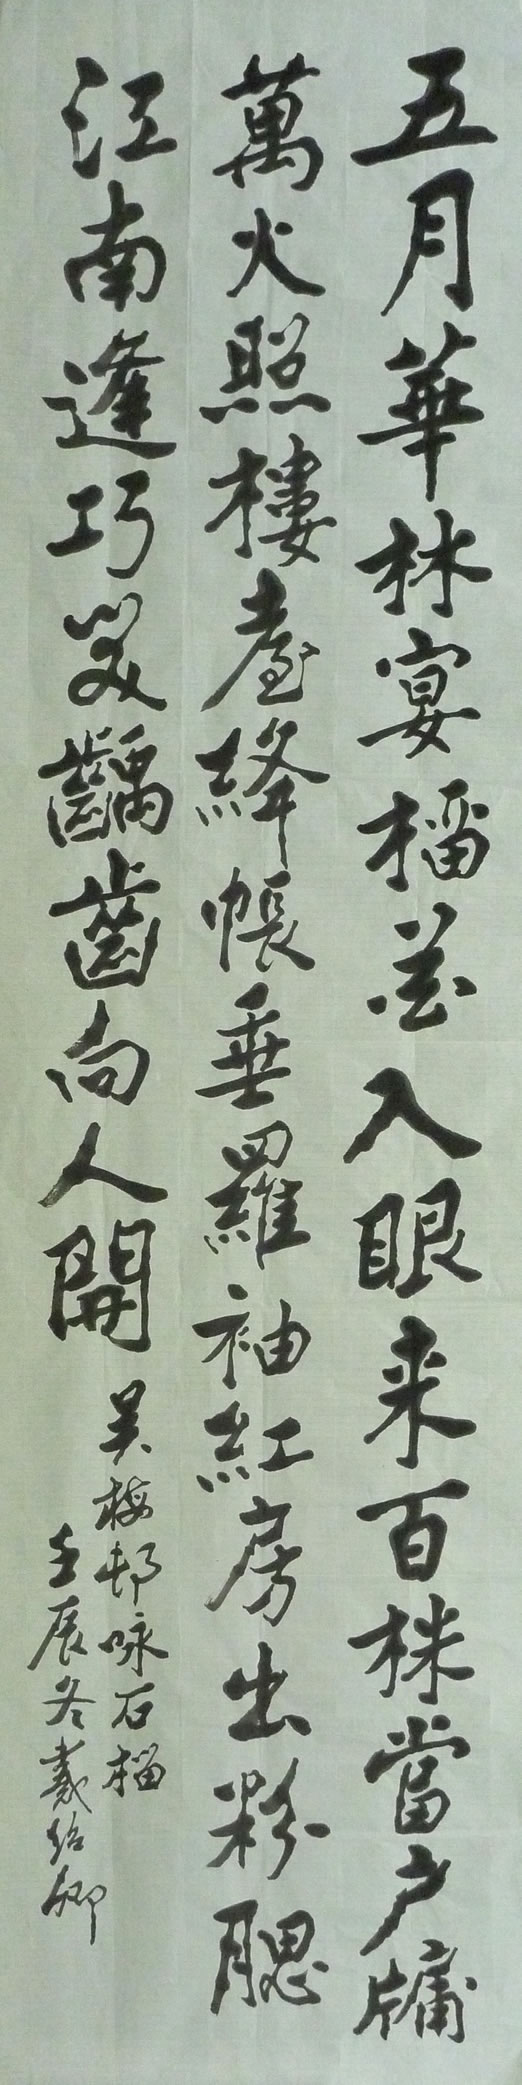 五月華林宴榴花入眼来百株當户牖
萬火照樓臺絳帳垂羅袖紅房出粉腮
江南逢巧笑齲齒向人開
吴梅邨咏石榴
壬辰冬戴紹卿